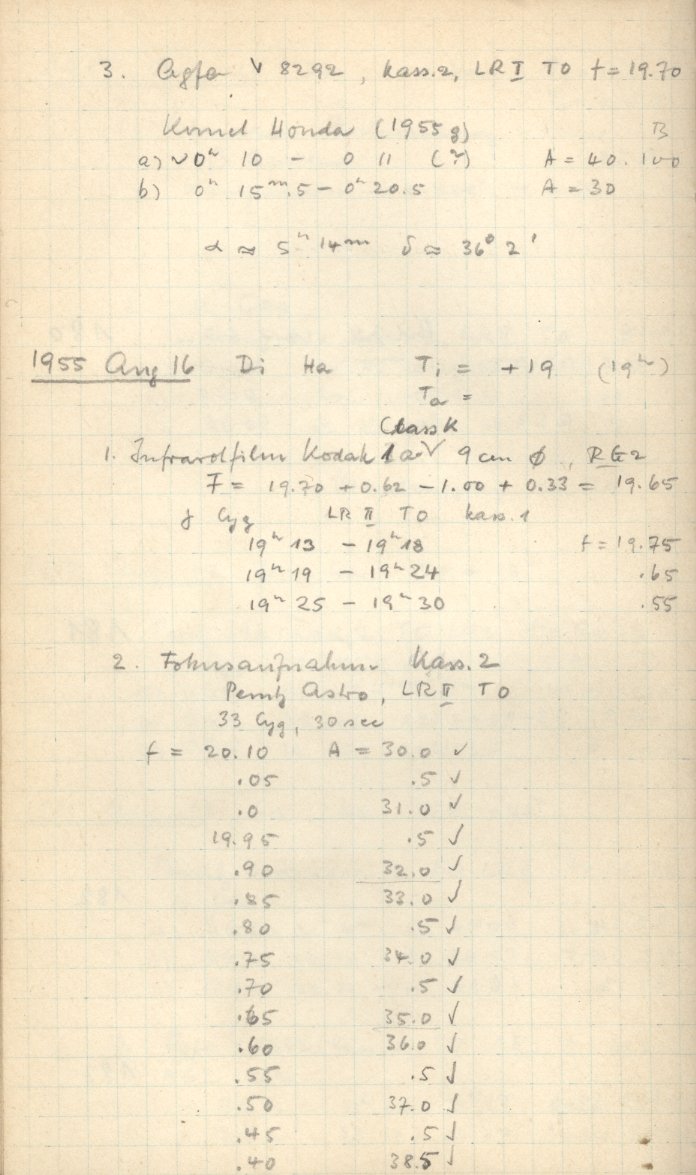 3. Agfa V 8292, Kass. 2, LR I TO f = 19.70
Komet Honda (1955 g) B
a) ~0ʰ 10 – 0 11 (?) A = 40.100
b) 0ʰ 15ᵐ.5 – 0ʰ 20.5 A = 30
α ≈ 5ʰ 14ᵐ δ ≈ 36° 2'
1955 Aug 16 Di Ha Tᵢ = +19 (19ʰ)
Tₐ =
Class K
1. Infrarotfilm Kodak 1a V 9 cm ϕ, RG2
F = 19.70 + 0.62 – 1.00 + 0.33 = 19.65
γ Cyg LR II TO Kass. 1
19ʰ 13 – 19ʰ 18 f = 19.75
19ʰ 19 – 19ʰ 24 .65
19ʰ 25 – 19ʰ 30 .55
2. Fokusaufnahme Kass. 2
Perutz Astro, LR II TO
33 Cyg, 30 sec
f = 20.10 A = 30.0 ✓
.05 .5 ✓
.0 31.0 ✓
19.95 .5 ✓
.90 32.0 ✓
.85 33.0 ✓
.80 .5 ✓
.75 34.0 ✓
.70 .5 ✓
.65 35.0 ✓
.60 36.0 ✓
.55 .5 ✓
.50 37.0 ✓
.45 .5 ✓
.40 38.5 ✓